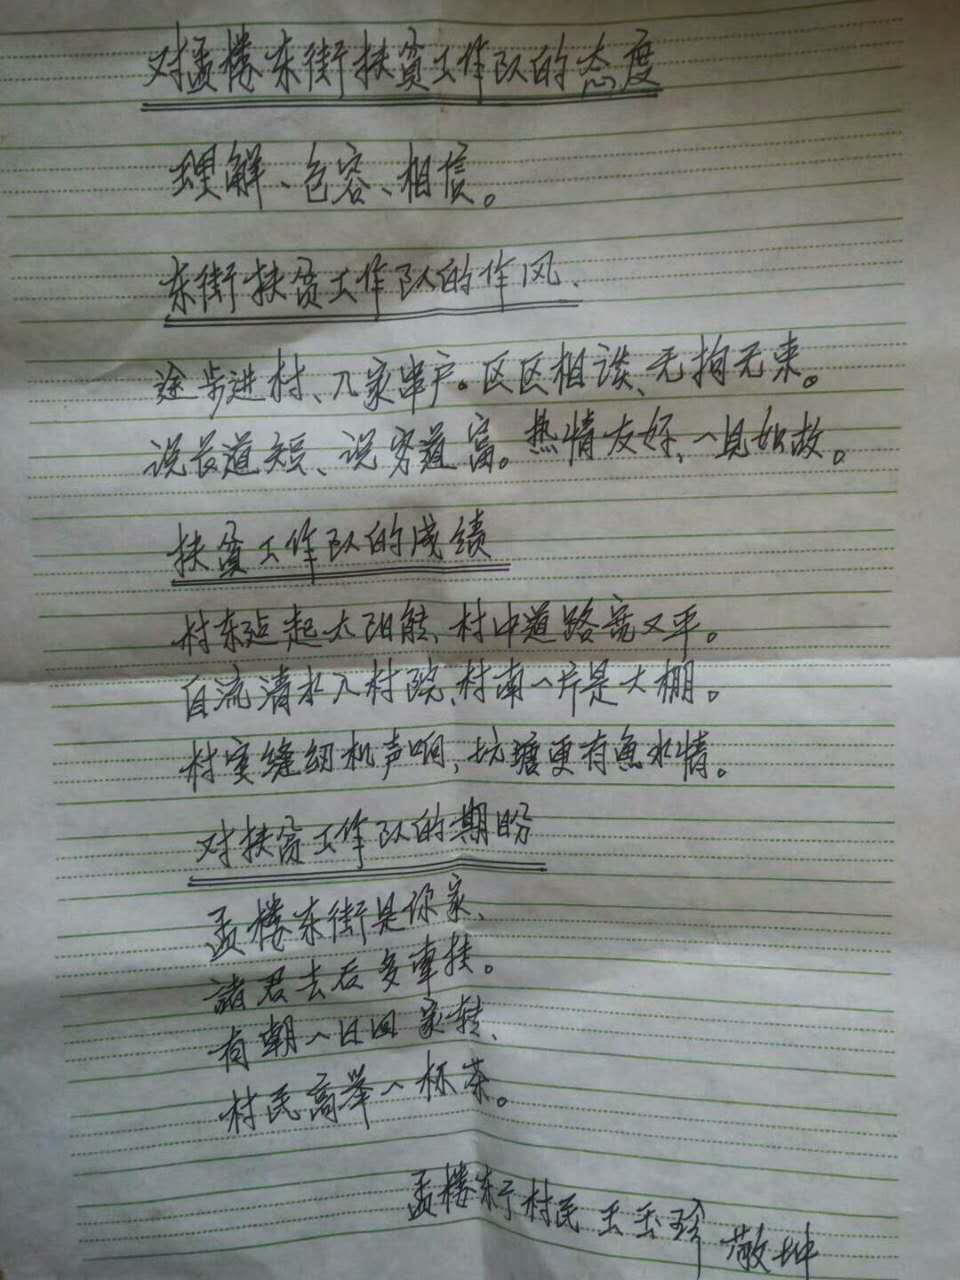 对孟楼东街扶贫工作队的态度
理解、包容、相信。
东街扶贫工作队的作风、
途步进村、几家串户。区区相谈、无拘无束。
说长道短、说穷道富。热情友好、一见如故。
扶贫工作队的成绩
村东边起太阳能、村中道路宽又平。
自流清水入村院、村南一片是大棚。
村室缝纫机声响，坑塘更有鱼水情。
对扶贫工作队的期盼
孟楼东街是你家、
諸君去后多牵挂。
有朝一日回家转、
村民高举一杯茶。
孟楼东于村民 王玉珍 敬坤